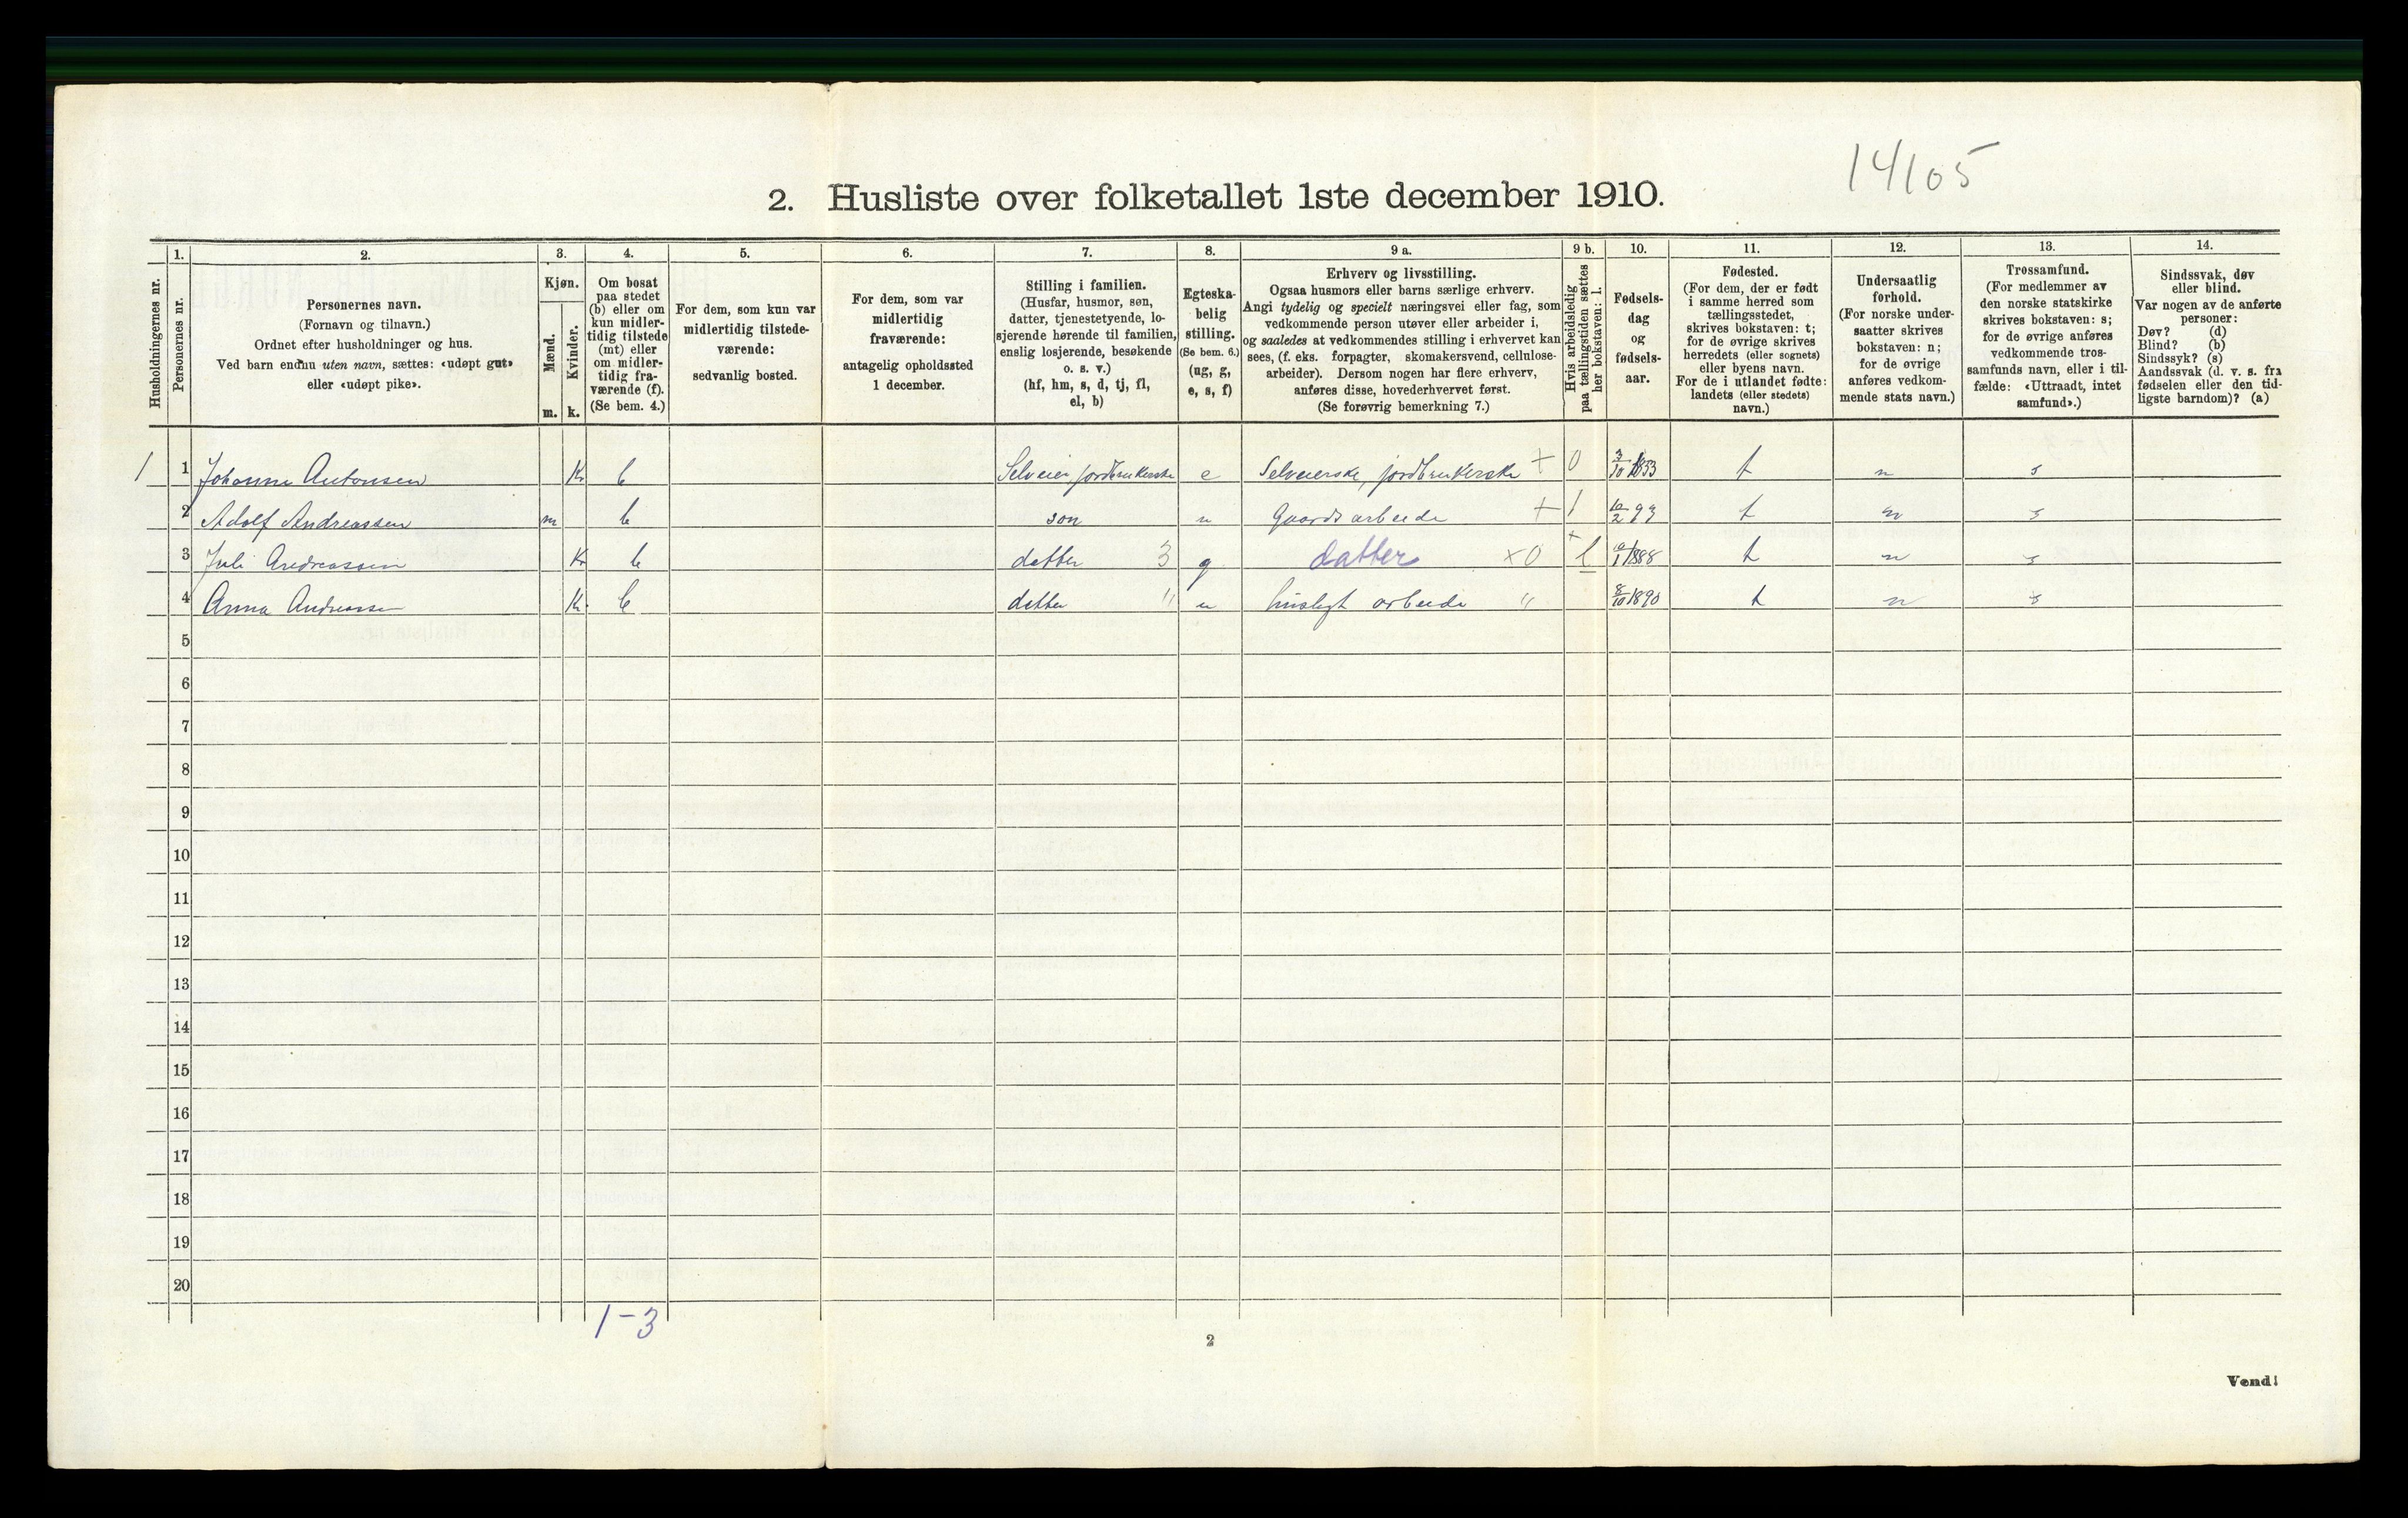 14105
2. Husliste over folketallet 1ste december 1910.
Husholdningernes nr.
1. Personernes nr.
2.
Personernes navn.
(Fornavn og tilnavn.)
Ordnet efter husholdninger og hus.
Ved barn endnu uten navn, sættes: «udøpt gut»
eller «udøpt pike».
3.
Kjøn.
Mænd. m.
Kvinder. k.
4.
Om bosat
paa stedet
(b) eller om
kun midler-
tidig tilstede
(mt) eller
om midler-
tidig fra-
værende (f).
(Se bem. 4.)
5.
For dem, som kun var
midlertidig tilstede-
værende:
sedvanlig bosted.
6.
For dem, som var
midlertidig
fraværende:
antagelig opholdssted
1 december.
7.
Stilling i familien.
(Husfar, husmor, søn,
datter, tjenestetyende, lo-
sjerende hørende til familien,
enslig losjerende, besøkende
o. s. v.)
(hf, hm, s, d, tj, fl,
el, b)
8.
Egteska-
belig
stilling.
(Se bem. 6.)
(ug, g,
e, s, f)
9 a.
Erhverv og livsstilling.
Ogsaa husmors eller barns særlige erhverv.
Angi tydelig og specielt næringsvei eller fag, som
vedkommende person utøver eller arbeider i,
og saaledes at vedkommendes stilling i erhvervet kan
sees, (f. eks. forpagter, skomakersvend, cellulose-
arbeider). Dersom nogen har flere erhverv,
anføres disse, hovederhvervet først.
(Se forøvrig bemerkning 7.)
9 b.
Hvis arbeidsledig
paa tællingstiden sættes
her bokstaven: l.
10.
Fødsels-
dag
og
fødsels-
aar.
11.
Fødested.
(For dem, der er født
i samme herred som
tællingsstedet,
skrives bokstaven: t;
for de øvrige skrives
herredets (eller sognets)
eller byens navn.
For de i utlandet fødte:
landets (eller stedets)
navn.)
12.
Undersaatlig
forhold.
(For norske under-
saatter skrives
bokstaven: n;
for de øvrige
anføres vedkom-
mende stats navn.)
13.
Trossamfund.
(For medlemmer av
den norske statskirke
skrives bokstaven: s;
for de øvrige anføres
vedkommende tros-
samfunds navn, eller i til-
fælde: «Uttraadt, intet
samfund».)
14.
Sindssvak, døv
eller blind.
Var nogen av de anførte
personer:
Døv? (d)
Blind? (b)
Sindssyk? (s)
Aandssvak (d. v. s. fra
fødselen eller den tid-
ligste barndom)? (a)
1 1 Johanne Antonsen K b Selveier, jordbrukerske e Selveierske, jordbrukerske + 0 3/10 1853 t n s
2 Adolf Andreassen m b son u Gaards arbeide + 1 t n s
3 Juli Andreassen K b datter 3 g datter × 0 + l 1888 t n s
4 Anna Andreassen K b datter " u husligt arbeide " 8/10 1890 t n s
5
6
7
8
9
10
11
12
13
14
15
16
17
18
19
20
1-3
2
Vend!